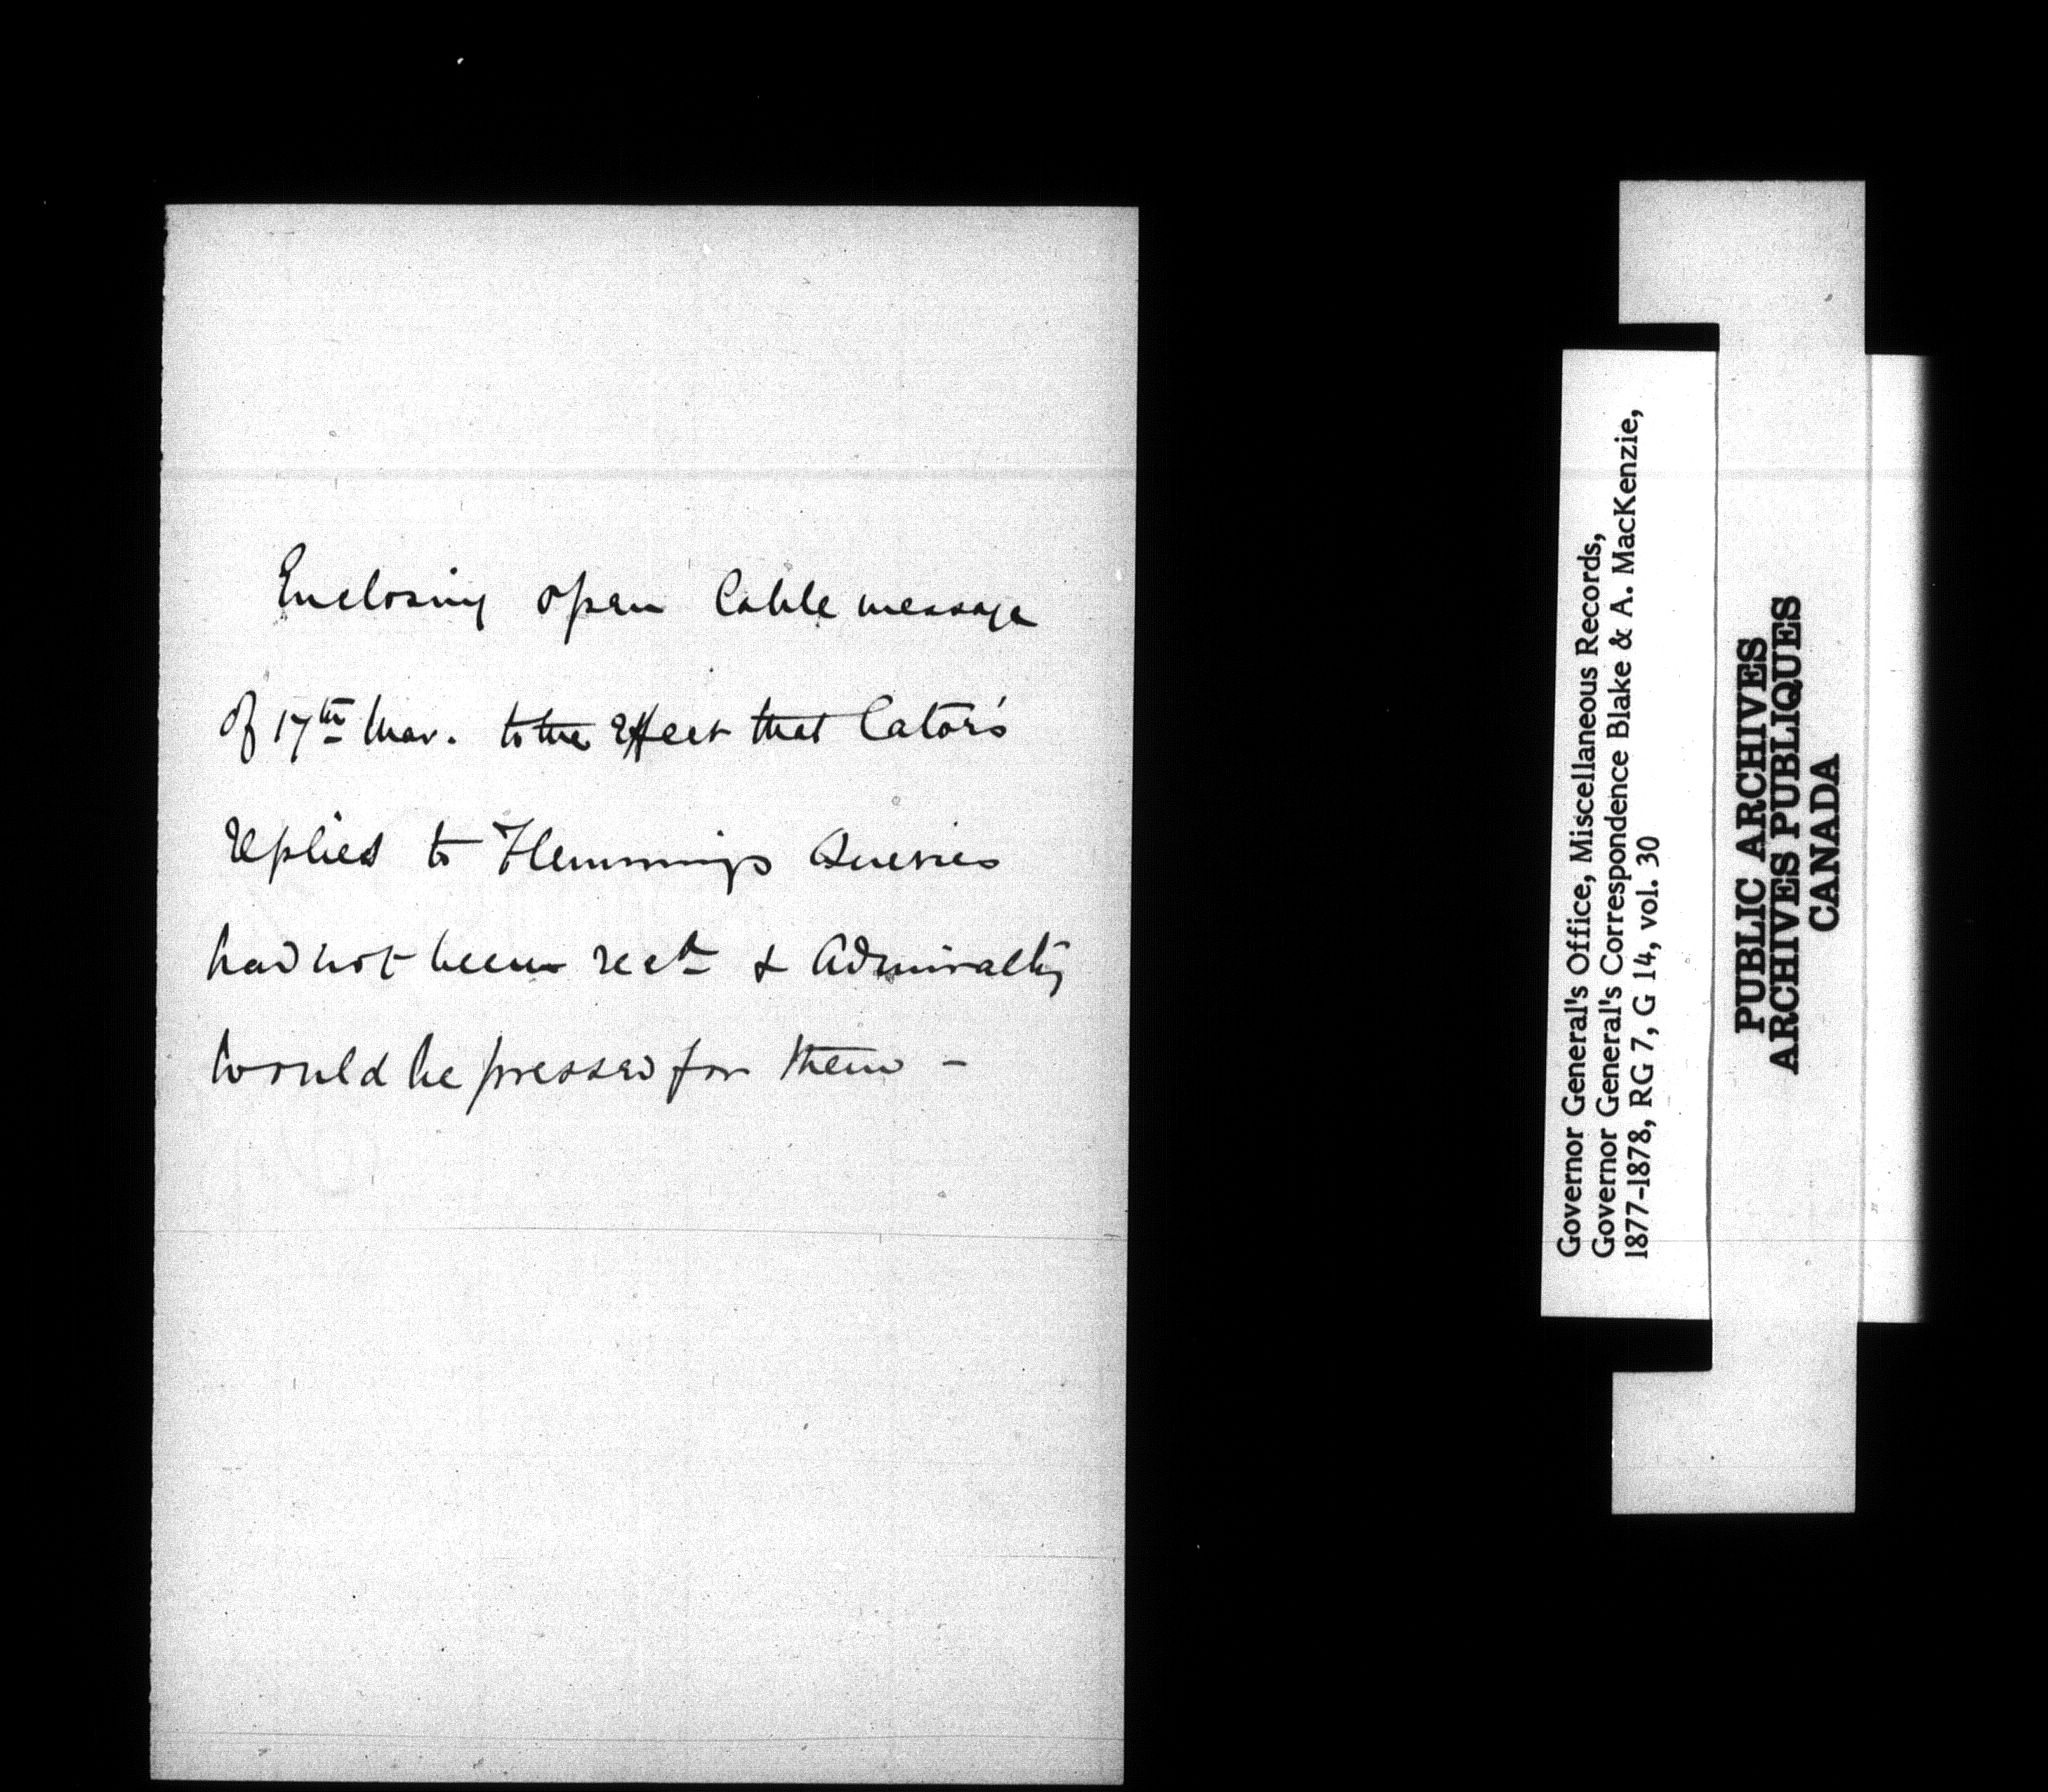 Enclosing open Cable message
of 17th Mar. to the effect that Cator's
replies to Flemmings Queries
had not been recd & Admiralty
would be pressed for them –
Governor General's Office, Miscellaneous Records,
Governor General's Correspondence Blake & A. MacKenzie,
1877-1878, RG 7, G 14, vol. 30
PUBLIC ARCHIVES
ARCHIVES PUBLIQUES
CANADA